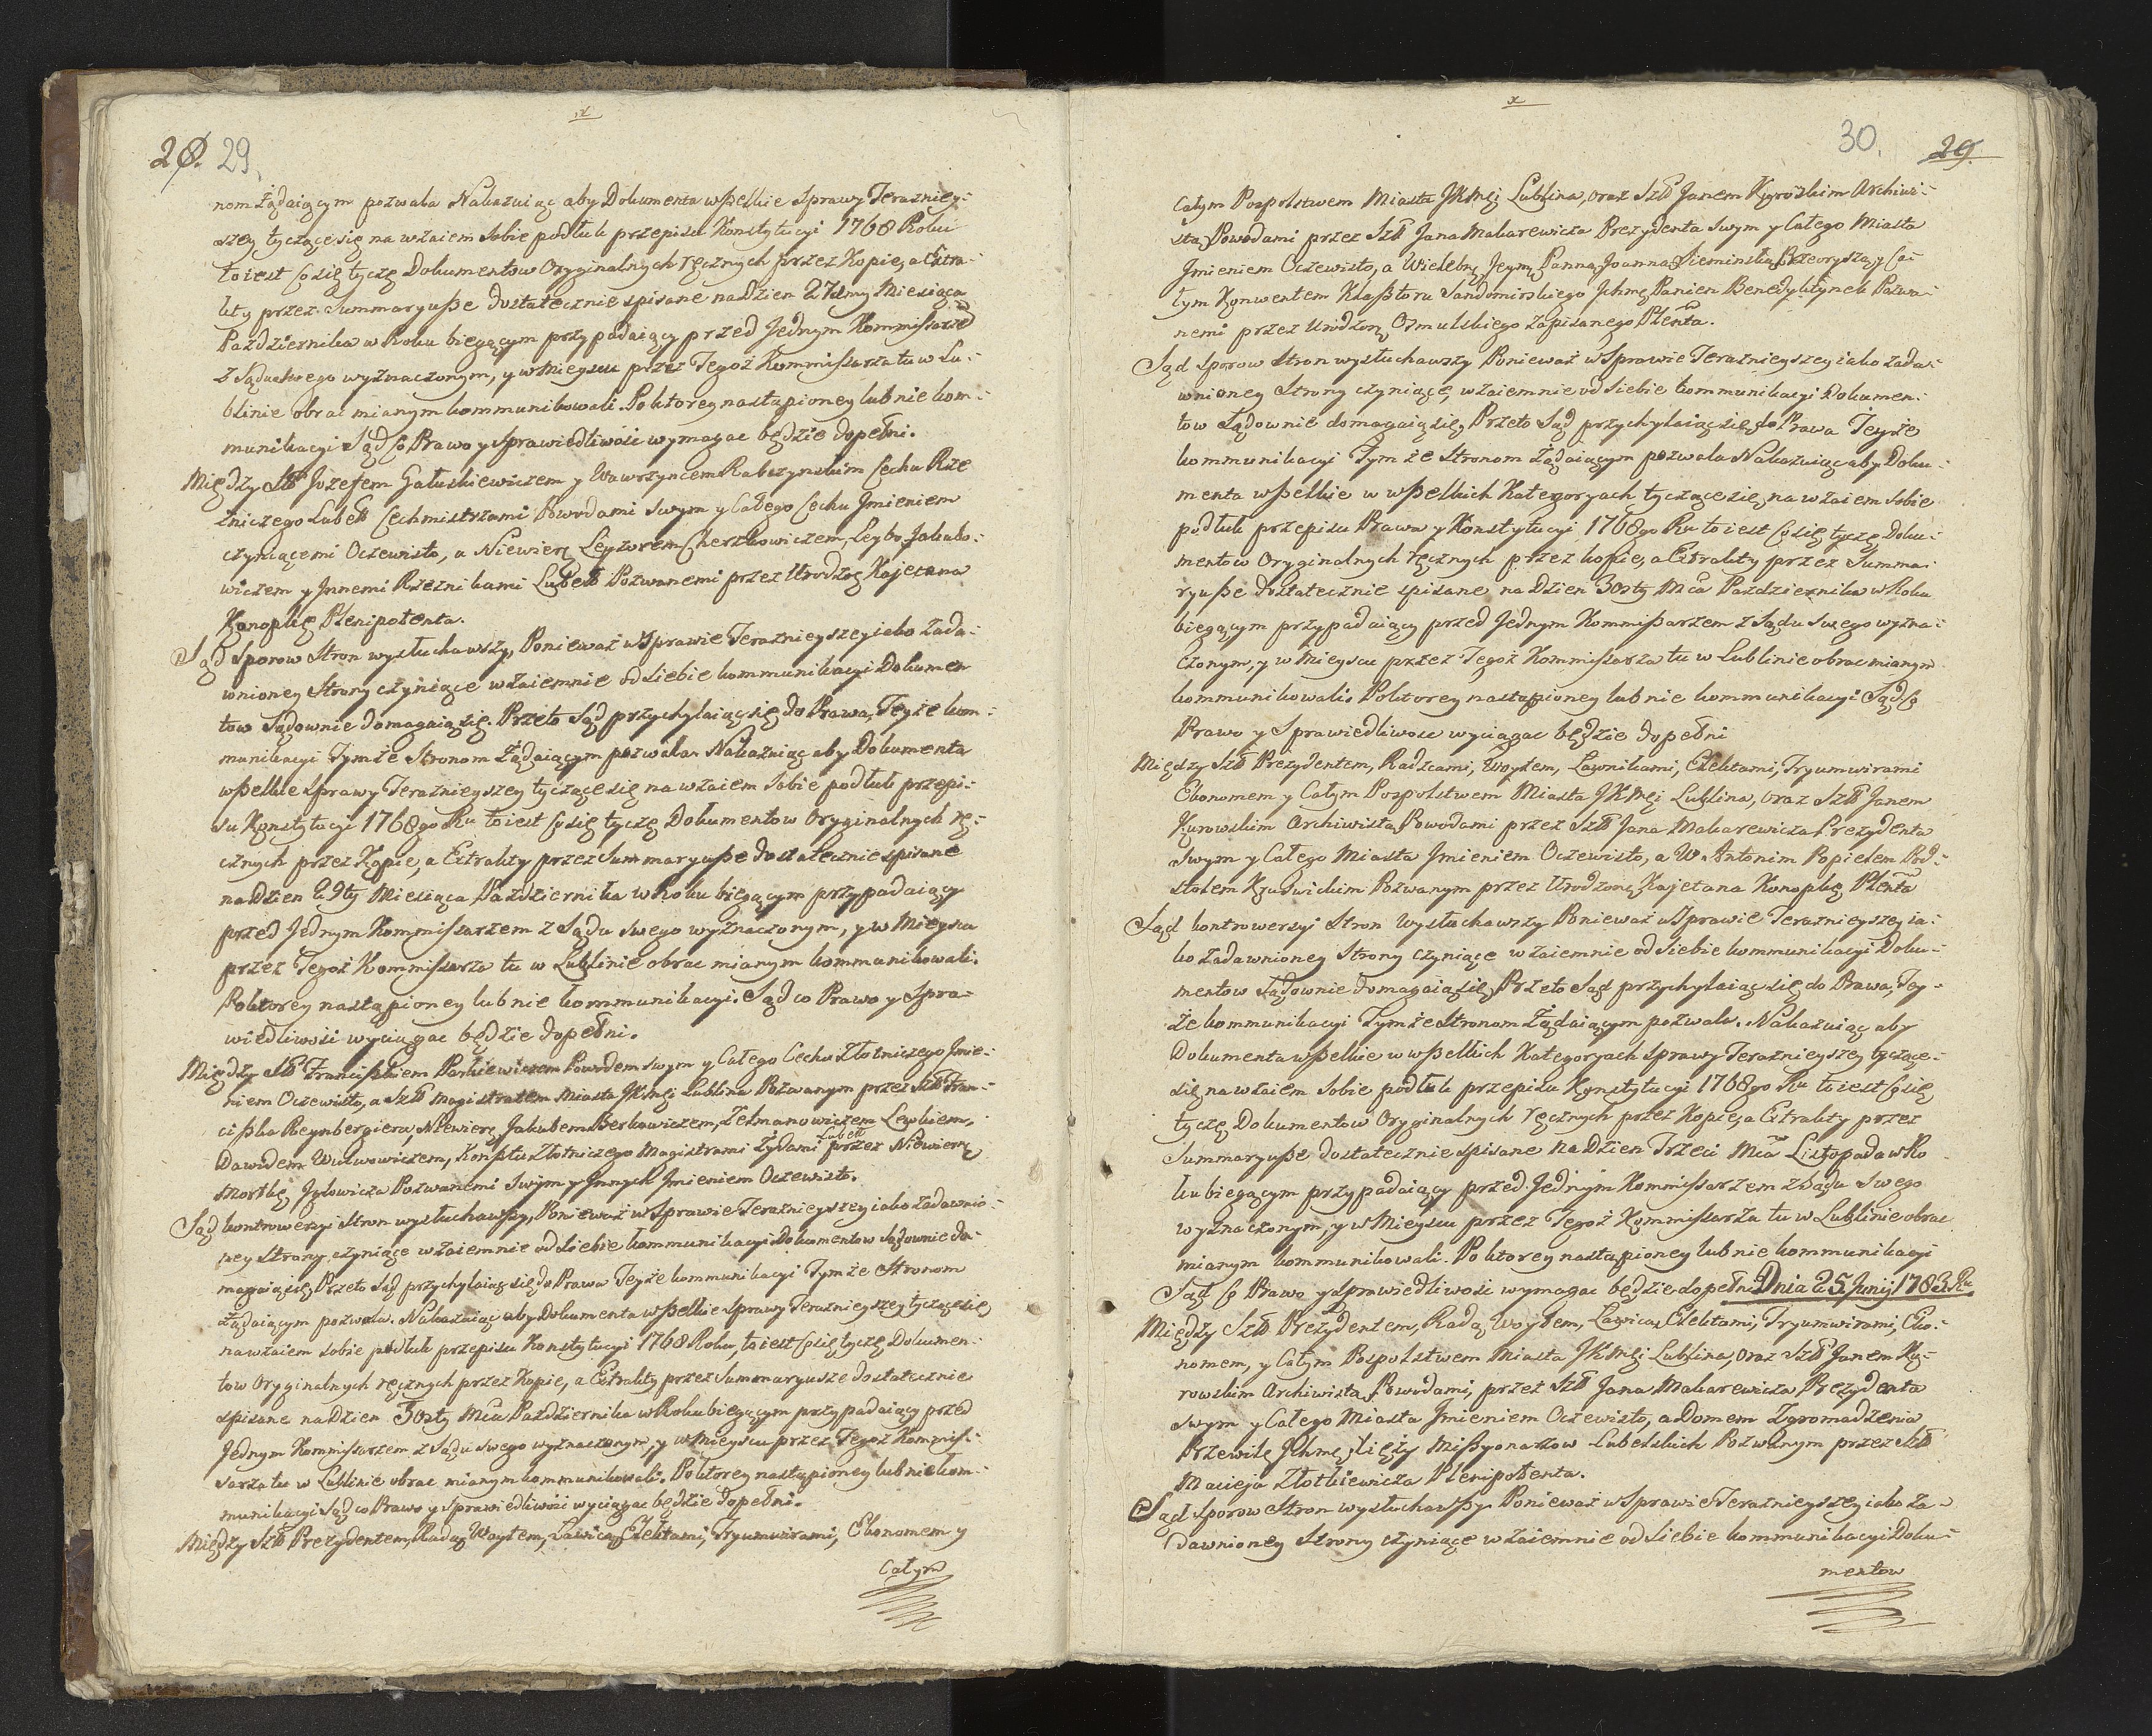 x
28. 29.
nom żądaiącym pozwala Nakazuiąc aby Dokumenta wszelkie Sprawy Terazniey-
szey tyczącesię na wzaiem Sobie podług przepisu Konstytucyi 1768 Roku
to iest co się tyczę Dokumentow Oryginalnych ręcznych przez Kopie, a Extra-
kty przez Summaryusze dostatecznie spisane na Dzien 27dmy Miesiąca
Pazdziernika w Roku biegącym przypadaiący przed Jednym Kommissarze
z Sądu swego wyznaczonym, y w mieyscu przez Tegoż Kommissarza tu w Lu-
blinie obrac mianym kommunikowali. Po ktorey nastąpioney lub nie kom-
munikacyi Sąd co Prawo y Sprawiedliwość wymagac będzie dopełni.
Między Sł Jozefem Gałuskiewiczem y Wawrzyncem Rabszynskim Cechu Rze
zniczego Lubell Cechmistrzami Powodami Swym y Całego Cechu Jmieniem
czyniącemi Oczewisto, a Niewierę Leyzorem Cherszkowiczem, Leybo Jakubo-
wiczem y Jnnemi Rzeznikami Lubell Pozwanemi przez Urodzeg Kajetana
Konopkę Plenipotenta.
Sąd Sporow Stron wysłuchawszy, Ponieważ w Sprawie Teraznieyszey iako zada-
wnioney Strony czyniące wzaiemnie od siebie kommunikacyi Dokumen
tow Sądownie domagaią się. Przeto Sąd przychylaiąc się do Prawa, Teyże kom-
munikacyi Tymże Stronom żądaiącym pozwala. Nakazuiąc aby Dokumenta
wszelkie Sprawy Teraznieyszey tyczące się na wzaiem Sobie podług przepi-
su Konstytucyi 1768go Ru to iest co się tyczę Dokumentow Oryginalnych rę-
cznych przez Kopie, a Extrakty przez Summaryusze dostatecznie spisane
na Dzien 29ty Miesiąca Pazdziernika w Roku biegącym przypadaiący
przed Jednym Kommissarzem z Sądu swego wyznaczonym, y w Mieyscu
przez Tegoż Kommissarza tu w Lublinie obrac mianym kommunikowali.
Po ktorey nastąpioney lub nie kommunikacyi. Sąd co Prawo y Spra-
wiedliwość wyciągac będzie dopełni.
Między Sł Franciszkiem Parkiewiczem Powodem swym y Całego Cechu Złotniczego Jmie-
niem Oczewisto, a Szł Magistratem Miasta JKMci Lublina Pozwanym przez Szł Fran-
ciszka Reynbergiera, Niewierę Jakubem Berkowiczem, Zelmanowiczem Lewkiem,
Dawidem Wulwowiczem, Konsztu Złotniczego Magistrami Żydami Lubell przez Niewierę
Smortkę, Jyłowicza Pozwanemi Swym y Jnnych Jmieniem Oczewisto.
Sąd kontrowersyi Stron wysłuchawszy, Ponieważ w Sprawie Teraznieyszey iako zadawnio-
ney Strony czyniące wzaiemnie od Siebie kommunikacyi Dokumentow Sądownie do-
magaią się, Przeto Sąd przychylaiąc się do Prawa Teyże kommunikacyi Tymże Stronom
żądaiącym pozwala. Nakazuiąc aby Dokumenta wszelkie Sprawy Teraznieyszey tyczące się,
na wzaiem sobie podług przepisu Konstytucyi 1768 Roku, to iest co się tyczę Dokumen-
tow Oryginalnych ręcznych przez Kopie, a Extrakty przez Summaryusze dostatecznie
spisane na Dzien 30sty Mca Pazdziernika w Roku biegącym przypadaiący przed
Jednym Kommissarzem z Sądu swego wyznaczonym, y w Mieyscu przez Tegoż Kommis-
sarza tu w Lublinie obrac mianym kommunikowali. Po ktorey nastąpioney lub nie kom-
munikacyi Sąd co Prawo y Sprawiedliwość wyciągac będzie dopełni.
Między Szł Prezydentem, Radą, Woytem, Ławicą, Elektami, Tryumwirami, Ekonomem y
Całym
x
30. 29.
Całym Pospolstwem Miasta JKMci Lublina, oraz Szł Janem Kurowskim Archiwi-
stą, Powodami przez Szł Jana Makarewicza Prezydenta Swym y Całego Miasta
Jmieniem Oczewisto, a Wielebną Jeymę Panną Joanną Sieminską Przeoryszą, y Ca-
łym Konwentem Klasztoru Sandomirskiego Jchmę Panien Benedyktynek Pozwa-
nemi przez Urodzong Osmulskiego zapisanego Plenta.
Sąd sporow stron wysłuchawszy Ponieważ w Sprawie Teraznieyszey iako zada-
wnioney Strony czyniące, wzaiemnie od siebie kommunikacyi Dokumen-
tow Sądownie domagaią się, Przeto Sąd przychylaiąc się do Prawa Teyże
kommunikacyi Tymże Stronom żądaiącym pozwala Nakazuiąc aby Doku-
menta wszelkie w wszelkich Kategoryach tyczące się, na wzaiem sobie
podług przepisu Prawa y Konstytucyi 1768go Ru to iest co się tyczę Doku-
mentow Oryginalnych ręcznych przez kopie, a Extrakty przez Summa-
ryusze dostatecznie spisane na Dzien 30sty Mca Pazdziernika w Roku
biegącym przypadaiący przed Jednym Kommissarzem z Sądu swego wyzna-
czonym, y w Mieyscu przez Tegoż Kommissarza tu w Lublinie obrac mianym
kommunikowali. Po ktorey nastąpioney lub nie kommunikacyi Sąd co
Prawo y Sprawiedliwosc wyciagac będzie dopełni
Między Szł Prezydentem, Radzcami, Woytem, Ławnikami, Elektami, Tryumwirami
Ekonomem y Całym Pospolstwem Miasta JKMci Lublina, oraz Szł Janem
Kurowskim Archiwistą, Powodami przez Szł Jana Makarewicza Prezydenta
Swym y Całego Miasta Jmieniem Oczewisto, a W. Antonim Popielem Pod-
stolem Kruswickim Pozwanym przez Urodzong Kajetana Konopkę Plenta
Sąd kontrowersyi Stron Wysłuchawszy Ponieważ w Sprawie Teraznieyszey ia-
ko zadawnioney Strony czyniące wzaiemnie od siebie kommunikacyi Doku-
mentow Sądownie domagaią się, Przeto Sąd przychylaiąc się do Prawa, Tey-
że kommunikacyi Tymże Stronom żądaiącym pozwala. Nakazuiąc aby
Dokumenta wszelkie w wszelkich Kategoryach Sprawy Teraznieyszey tyczące-
się na wzaiem sobie podług przepisu Konstytucyi 1768go Ru to iest co się
tyczę Dokumentow Oryginalnych ręcznych przez Kopie, a Extrakty przez
Summaryusze dostatecznie spisane na Dzien Trzeci Mca Listopada w Ro
ku biegącym przypadaiący przed Jednym Kommissarzem z Sądu Swego
wyznaczonym, y w Mieyscu przez Tegoż Kommissarza tu w Lublinie obrac
mianym kommunikowali. Po ktorey nastąpioney lub nie kommunikacyi
Sąd co Prawo y Sprawiedliwosc wymagac będzie dopełni Dnia 25 Junij 1783 Ru
Między Szł Prezydentem, Radą, Woytem, Ławicą, Elektami, Tryumwirami, Eko-
nomem, y Całym Pospolstwem Miasta JKMci Lublina, oraz Szł Janem Ku-
rowskim Archiwistą, Powodami, przez Szł Jana Makarewicza Prezydenta
swym y Całego Miasta Jmieniem Oczewisto, a Domem Zgromadzenia
Przewilę Jchmę Xięży Missyonarzow Lubelskich Pozwanym przez Szł
Macieja Złotkiewicza Plenipotenta.
Sąd Sporow Stron wysłuchawszy Ponieważ w Sprawie Teraznieyszey iako za-
dawnioney Strony czyniące wzaiemnie od Siebie kommunikacyi Doku-
mentow